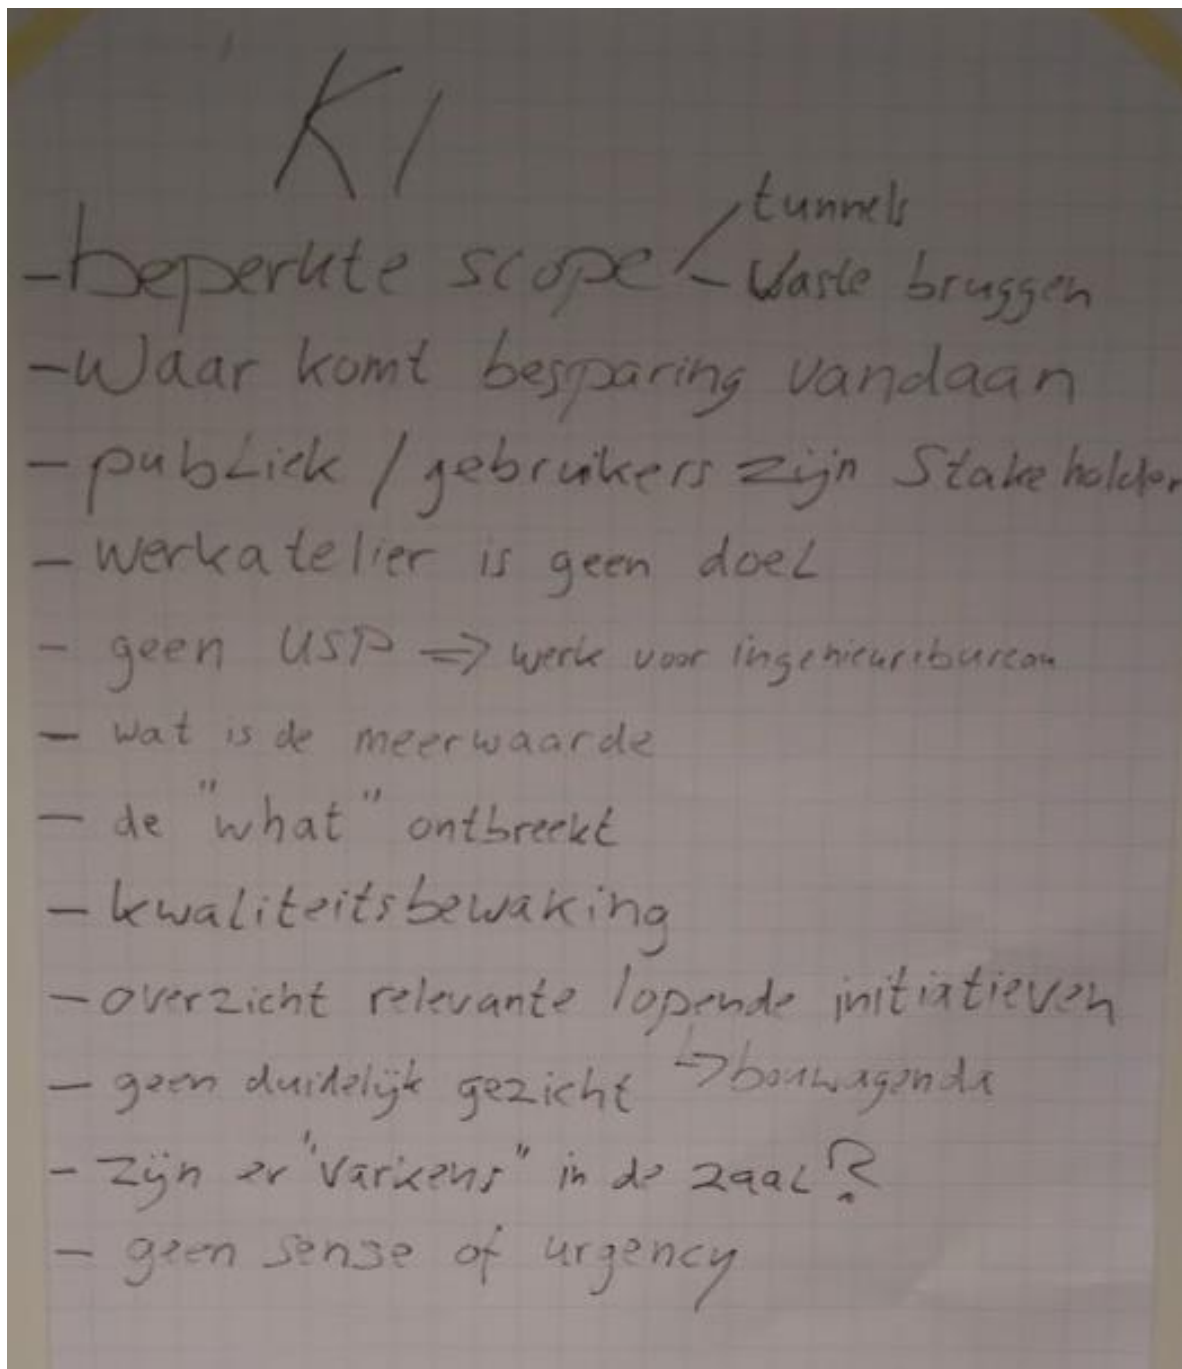 K1
tunnels
- beperkte scope - Vaste bruggen
- Waar komt besparing vandaan
- publiek / gebruikers zijn Stakeholder
- werkatelier is geen doel
- geen USP => werk voor ingenieursbureau
- wat is de meerwaarde
- de "what" ontbreekt
- kwaliteitsbewaking
- overzicht relevante lopende initiatieven
- geen duidelijk gezicht ↳> bouwagenda
- zijn er "varkens" in de zaal?
- geen sense of urgency